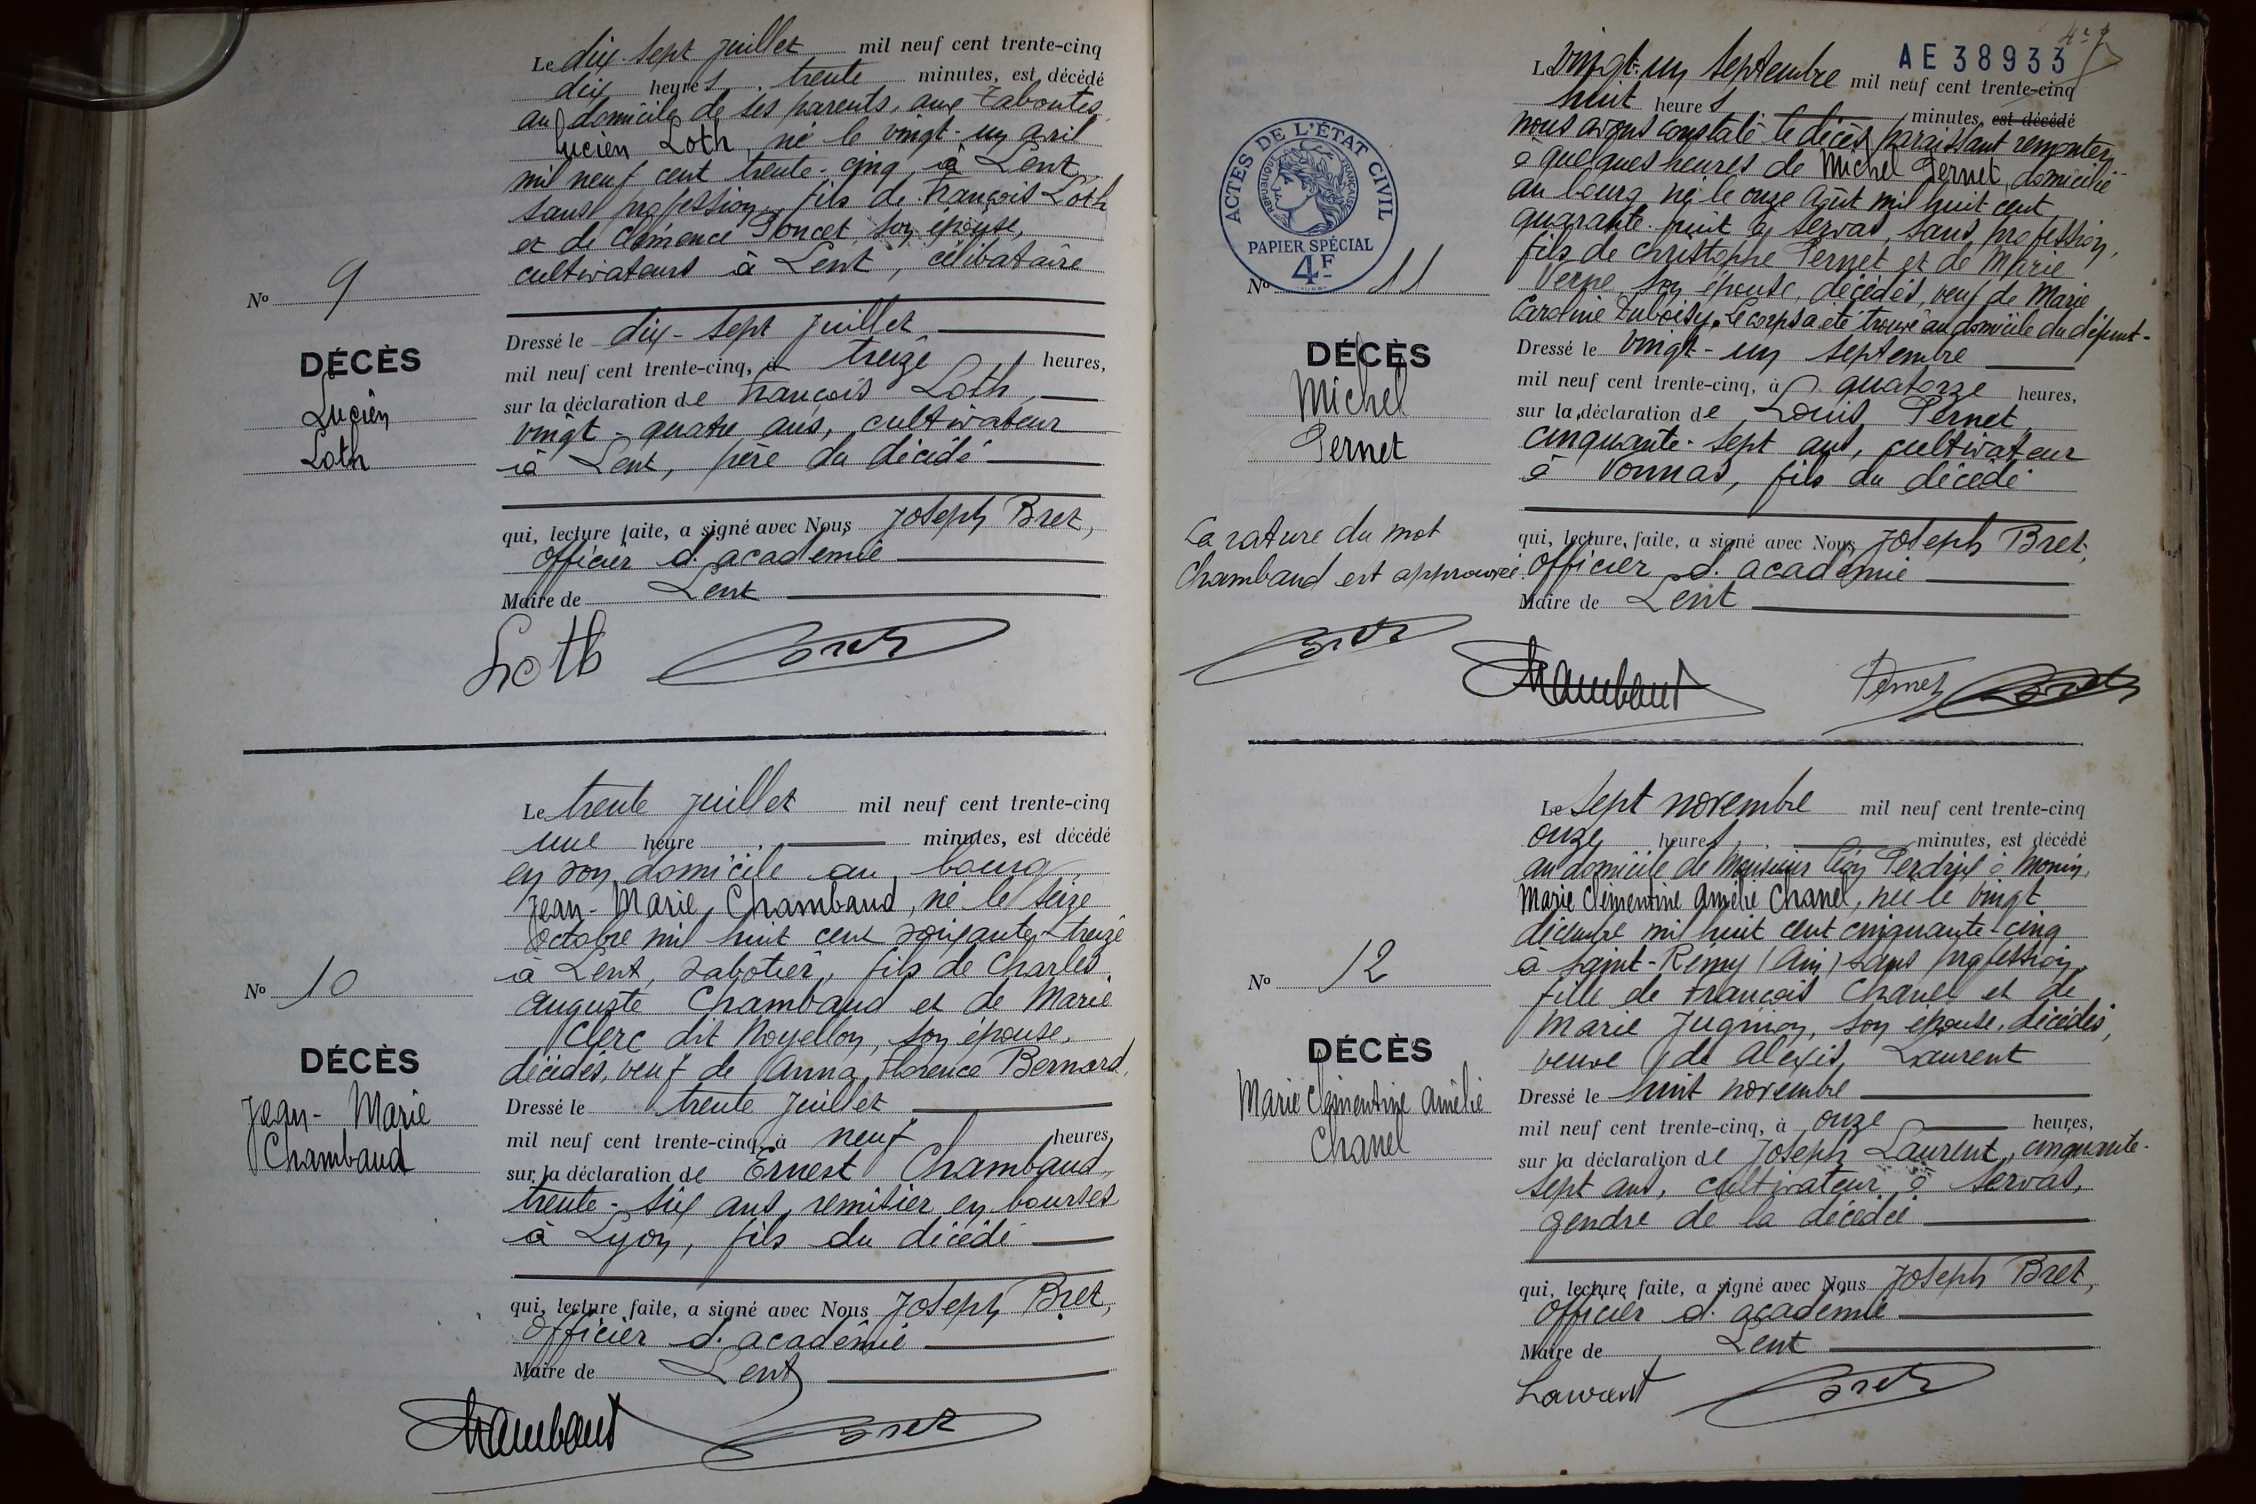 Le dix-sept juillet mil neuf cent trente-cinq
dix heures trente minutes, est décédé
au domicile de ses parents, aux
Lucien Loth, né le vingt-un avril
mil neuf cent trente-cinq à Lent,
sans profession, fils de François Loth
et de Clémence Poncet son épouse,
cultivateurs à Lent, célibataire
No 9
DÉCÈS
Lucien
Loth
Dressé le dix-sept juillet
mil neuf cent trente-cinq, à treize heures,
sur la déclaration de François Loth,
vingt-quatre ans, cultivateur
à Lent, père du décédé
qui, lecture faite, a signé avec Nous Joseph Bret,
officier d'académie
Maire de Lent
Loth Bret
Le trente juillet mil neuf cent trente-cinq
une heure minutes, est décédé
en son domicile au bourg
Jean-Marie Chambaud, né le seize
octobre mil huit cent soixante-treize
à Lent, sabotier, fils de Charles
Auguste Chambaud et de Marie
Clerc dit Noyellon, son épouse,
décédés, veuf de Anna Florence Bernard
No 10
DÉCÈS
Jean-Marie
Chambaud
Dressé le trente juillet
mil neuf cent trente-cinq, à neuf heures,
sur la déclaration de Ernest Chambaud,
trente-six ans, remisier en bourses
à Lyon, fils du décédé
qui, lecture faite, a signé avec Nous Joseph Bret,
officier d'académie
Maire de Lent
Chambaud Bret
AE 38933
Le vingt-un septembre mil neuf cent trente-cinq
huit heures minutes, est décédé
nous avons constaté le décès paraissant remonter
à quelques heures de Michel Pernet, domicilié
au bourg né le onze août mil huit cent
quarante-huit à Servas, sans profession,
fils de Christophe Pernet et de Marie
Verne son épouse, décédés, veuf de Marie
Caroline Duboisy. Le corps a été trouvé au domicile du défunt-
ACTES DE L'ÉTAT CIVIL
RÉPUBLIQUE FRANÇAISE
PAPIER SPÉCIAL
4F
No 11
DÉCÈS
Michel
Pernet
Dressé le vingt-un septembre
mil neuf cent trente-cinq, à quatorze heures,
sur la déclaration de Louis Pernet,
cinquante-sept ans, cultivateur
à Vonnas, fils du décédé
qui, lecture faite, a signé avec Nous Joseph Bret,
officier d'académie
Maire de Lent
La rature du mot
Chambaud est approuvée
Bret
Chambaud Pernet Bret
Le sept novembre mil neuf cent trente-cinq
onze heures minutes, est décédé
au domicile de Monsieur Léon Perdrix à Monin,
Marie Clémentine Amélie Chanel, née le vingt
décembre mil huit cent cinquante-cinq
à Saint-Remy (Ain) sans profession,
fille de François Chanel et de
Marie Jugnion, son épouse, décédés,
veuve de Alexis Laurent
No 12
DÉCÈS
Marie Clémentine Amélie
Chanel
Dressé le huit novembre
mil neuf cent trente-cinq, à onze heures,
sur la déclaration de Joseph Laurent, cinquante-
sept ans, cultivateur à Servas,
gendre de la décédée
qui, lecture faite, a signé avec Nous Joseph Bret,
officier d'académie
Maire de Lent
Laurent Bret